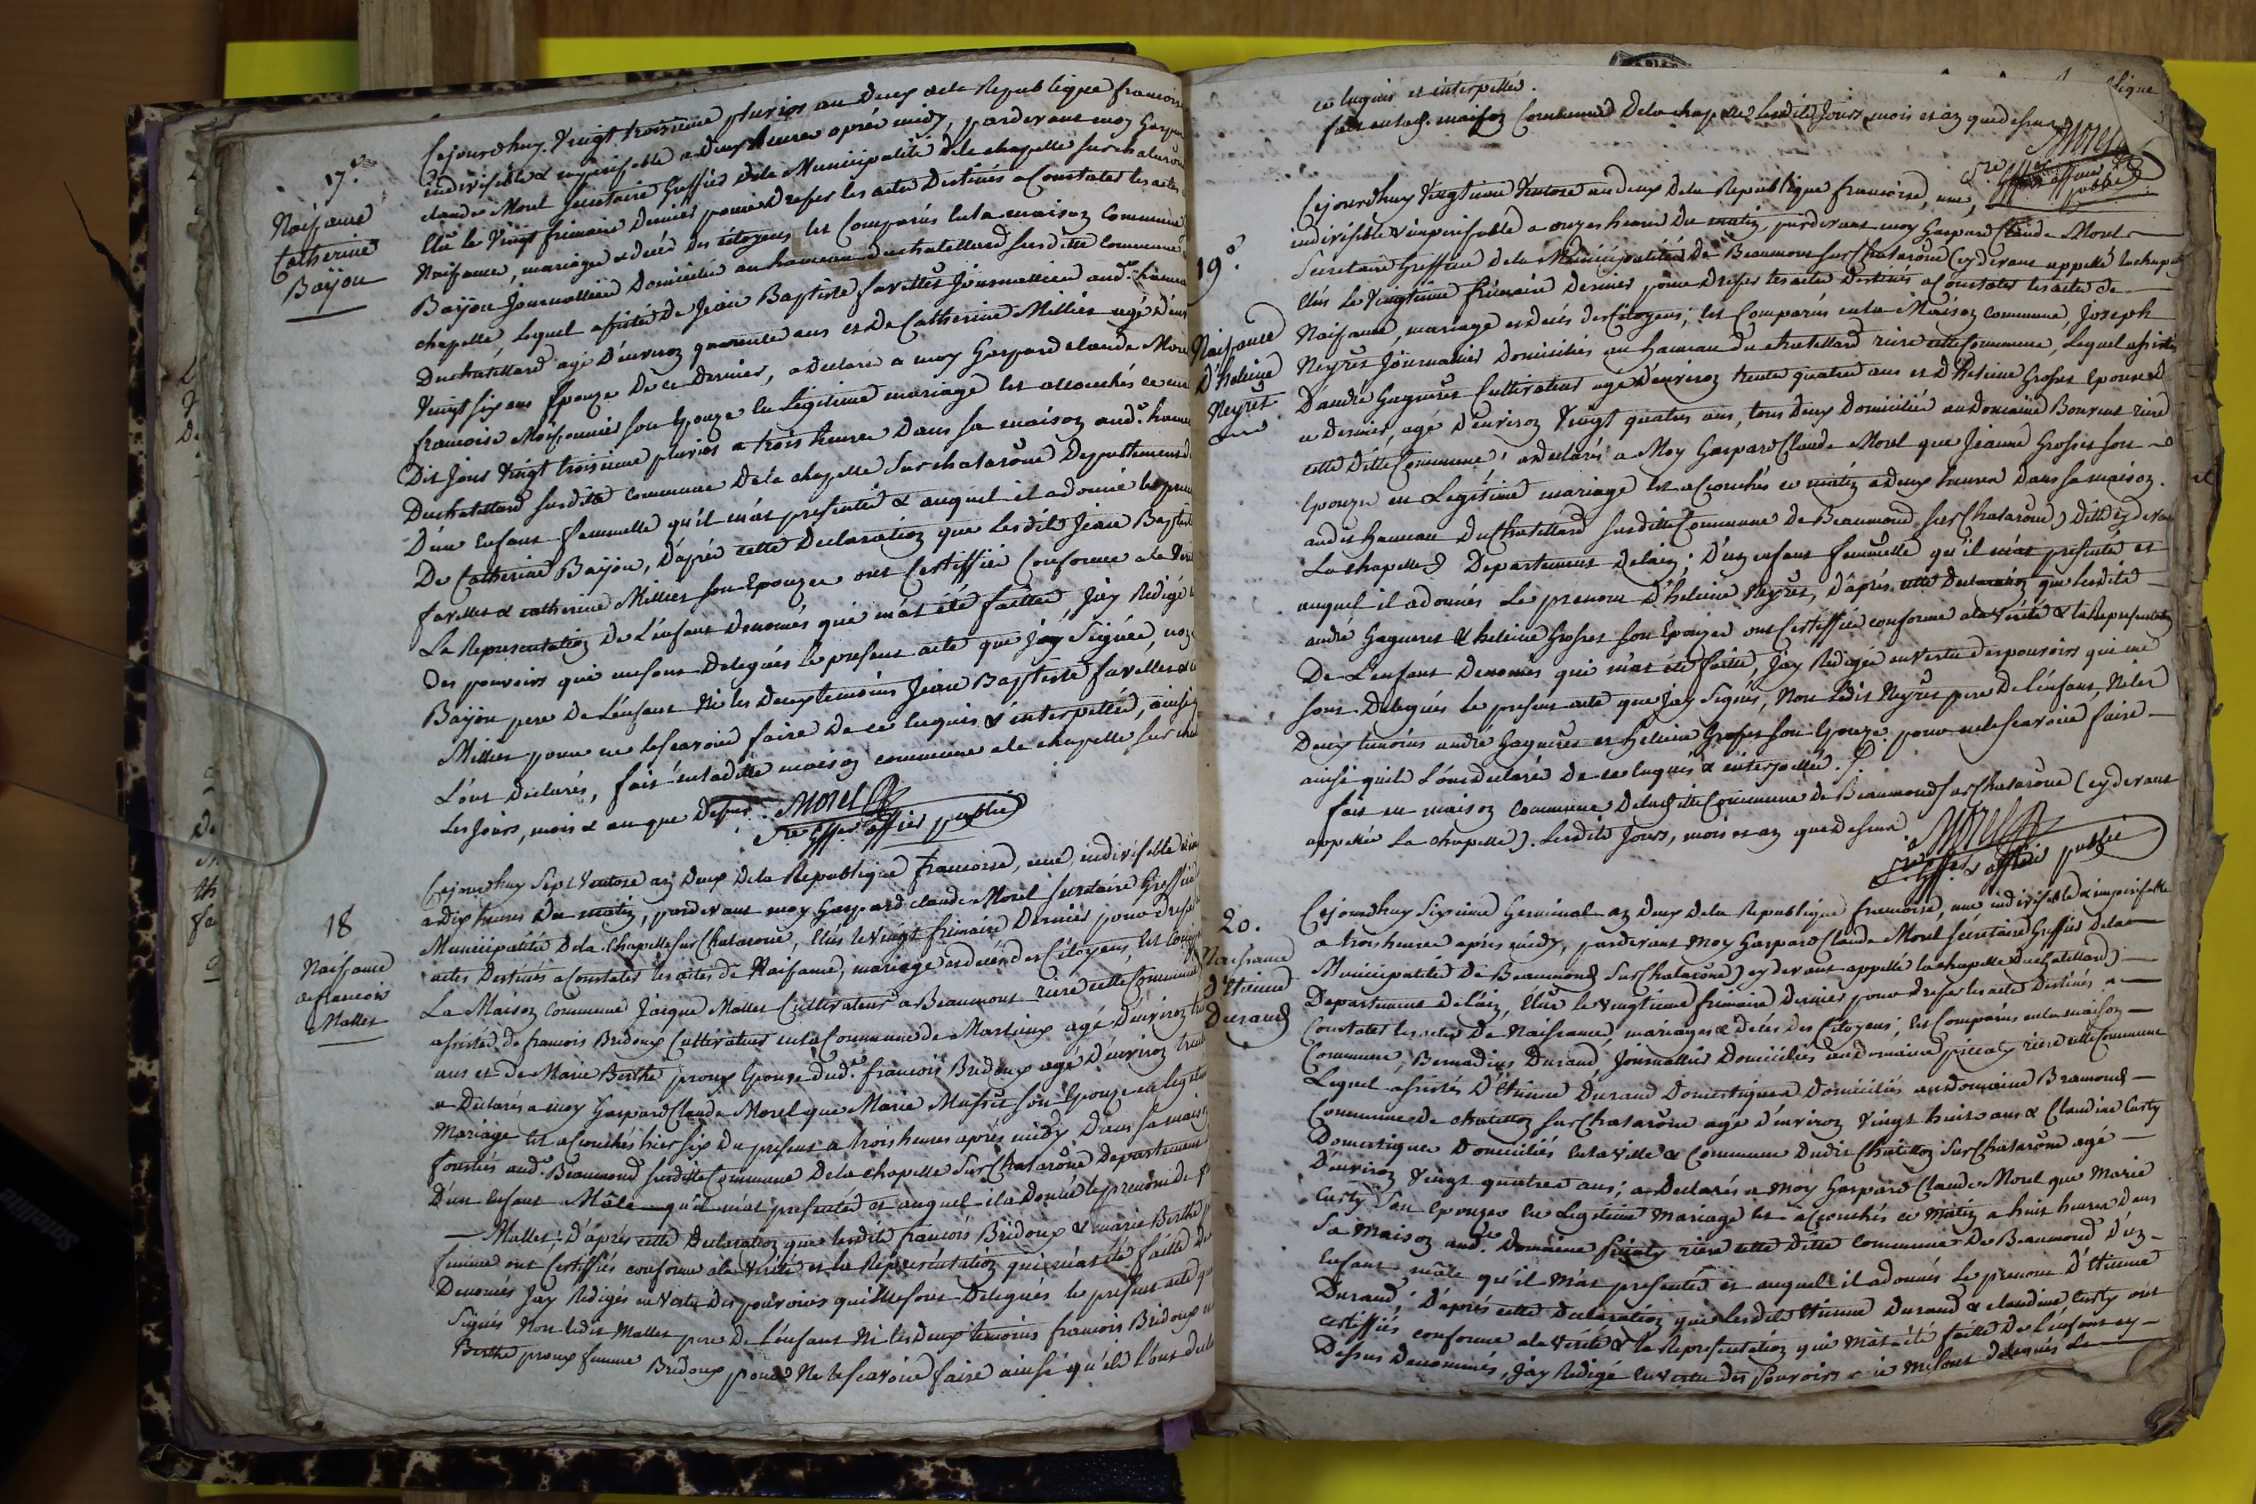 17.e
Naissance
Catherine
Bajjon
Cejourdhuy Vingt troisieme pluvios an Deux de la Republique francois
indivisible & imperissable a Deux heures aprés midy, pardevant moy Gaspar
claude Morel Secretaire Greffier de la Municipalité de la chapelle sur chalarone
Elû le Vingt frimaire Dernier pour Dresser les actes Destinés a Constater les actes
Naissance, mariages & decés des citoyens, Est Comparus En la maison Commune
Bajjon Journallier Domicilié au hameau duchatellard susditte Commune
chapelle, Lequel assisté de Jean Baptiste favelles Journallier aud. hamea
Duchatellard agé D'environ quarente ans et de Catherine Millier agé D'env
Vingt six ans Epouze De ce Dernier, a declaré a moy Gaspard claude More
francoise Moissonnier son Epouze En Légitime mariage Est accouchés ce
Dit Jour Vingt troisieme pluvios a trois heures Dans sa maison aud. hame
Duchatellard susditte commune de la chapelle sur chalarone Departement d
D'un Enfant femmelle qu'il m'at presenté & auquel il a donné le prenom
De Catherine Bajjon, D'après cette Declaration que Lesdits Jean Baptist
favelles & catherine Millier son Epouze ont Certiffiés Conforme a la Veri
La Representation De L'enfant Denomés qui m'at été faitte, J'ay Rédigé
des pouvoirs qui me sont Delegués le present acte que J'ay Signés, non
Bajjon pere De L'enfant Ni les Deux temoins Jean Baptiste favelles &
Millier pour ne le scavoir faire De ce Enquis & interpellés, ainsi
L'ont Déclarés, fait En laditte maison commune de la chapelle sur cha
Les Jours, mois & an que Dessus. Morel
S.re Gff.er officier public
18
Naissance
de francois
Mallet
Cejourdhuy Sept Ventose an Deux De la Republique francoise, une, indivisible
a Dix heures Du matin, pardevant moy Gaspard claude Morel Secretaire Greffie
Municipalité de la Chapelle sur Chalarone, Elus le Vingt frimaire Dernier pour Dresse
actes Destinés a Constater les actes de Naissance, mariage & decés des Citoyens, Est Comp
La Maison Commune Jacque Mallet Cultivateur a Beaumont riere cette Commune
assisté de francois Bridoux Cultivateur en la Commune de Marlieux agé D'environ
ans et de Marie Berthe proux Epouse dud. francois Bridoux agé D'environ trent
a Déclarés a moy Gaspard Claude Morel que Marie Musset son Epouze en legitim
Mariage Est accouchés hier Six Du present a trois heures aprés midy Dans sa maison
aud. Beaumond susditte Commune de la chapelle sur Chalarone Departement
D'un Enfant Mâle qu'il m'at presenté et auquel il a Donné le prenom de
Mallet; D'après cette Declaration que lesdits francois Bridoux & marie Berthe
femme ont Certiffiés conforme a la Vérité et la Représentation qui m'at été faitte De
Denomés J'ay Redigés en Vertu Des pouvoirs qui me sont Delegués le present acte que
Signés Non ledit Mallet pere De L'enfant Ni les deux temoins francois Bridoux
Berthe proux femme Bridoux pour Ne le scavoir faire ainsi qu'ils L'ont decla
ce Enquis et interpellés.
fait en lad. maison Commune De la chapelle Lesdits Jours, mois et an que dessus
Morel
S.re Gff.er officier public
19.e
Naissance
D'heleine
Neyret
Cejourdhuy Vingtieme Ventose an deux De la Republique francoise, une,
indivisible & imperissable a onzes heures Du matin pardevant moy Gaspard Claude Morel
Secretaire Greffier de la Municipalité De Beaumont sur Chalarone (cy devant appellé la chape
Elus Le Vingtieme frimaire Dernier pour Dresser les actes Destinés a Constater les actes de
Naissance, mariage et decés des Citoyens; Est Comparus en la Maison commune, Joseph
Neyret Journallier Domiciliés au Hameau du chatellard riere cette Commune, Lequel assistés
D'andré Gagneres Cultivateur agé D'environ trente quatre ans et D'Heleine Grosset Epouze D
ce dernier, agé D'environ Vingt quatre ans, tous Deux Domiciliés au Domaine Bonreux riere
cette Ditte Commune; a declarés a Moy Gaspard Claude Morel que Jeanne Grosset son
Epouze en Legitime mariage Est accouchés ce matin a deux heures Dans sa maison
audit Hameau Du Chatellard susditte Commune de Beaumond sur Chalarone) Ditte cy devan
La chapelle) Departement de l'ain; D'un enfant femmelle qu'il m'at presenté et
auquel il a donnés Le prenom D'héleine Neyret, D'après cette Declaration que lesdits
andré Gagneres & heleine Grosset son Epouze ont Certiffiés conforme a la Vérité & la Representation
De L'enfant Denomés qui m'at été faitte, J'ay Redigés en Vertu des pouvoirs qui me
sont Delegués Le present acte que J'ay Signés, Non Ledit Neyret pere De L'enfant, Ni les
Deux temoins andré Gagneres et Heleine Grosset son Epouze pour ne le scavoir faire
ainsi qu'ils L'ont declarés De ce Enquis & interpellés.
fait en maison commune De la ditte Commune de Beaumond sur Chalarone (cy devant
appellée La chapelle). Lesdits Jours, mois et an que dessus. Morel
S.re Gff.er officier public
20.
Naissance
D'Etienne
Durand
Cejourdhuy Sixieme Germinal an deux De la Republique francoise, une indivisible & imperissable
a trois heures aprés midy, pardevant Moy Gaspard Claude Morel Secretaire Greffier De la
Municipalité De Beaumond sur Chalarone) cy devant appellé la chapelle du chatellard)
Departement de l'ain, Elus le vingtieme frimaire dernier pour dresser les actes Destinés a
Constater les actes De Naissance, mariages & decés des Citoyens; Est Comparus en la maison
Commune, Bernadin Durand, Journallier Domiciliés au domaine piccaty riere cette Commune
Lequel assistés D'étienne Durand Domestique Domiciliés au Domaine Bramond
Commune de chatillon sur Chalarone agé d'environ Vingt huit ans & Claudine Curty
Domestique Domiciliés En la ville & Commune Dudit Châtillon sur Chalarone agé
D'environ Vingt quatre ans; a Declarés a Moy Gaspard Claude Morel que Marie
Curty son Epouze En Legitime Mariage Est accouchés ce matin a huit heures dans
sa Maison aud. Domaine piccaty riere cette ditte commune De Beaumond d'un
Enfant mâle qu'il m'at presentés et auquel il a donnés Le prenom D'étienne
Durand; D'après cette declaration que lesdits Etienne Durand & claudine Curty ont
certiffiés conforme a la Vérité & la Representation qui m'at été faitte De L'enfant cy
Dessus Denommés, J'ay Redigé En Vertu Des pouvoirs qui me sont delegués Le